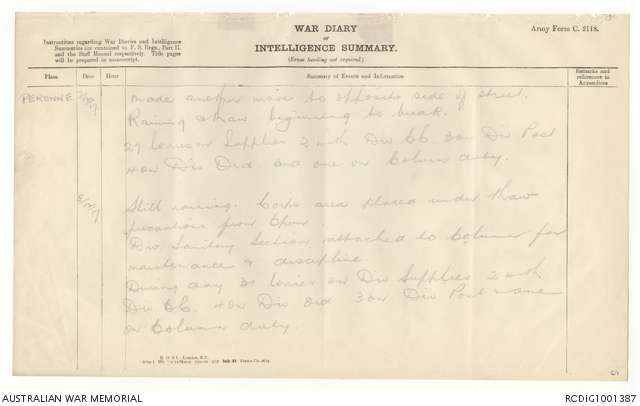 Army Form C. 2118.
WAR DIARY
or
INTELLIGENCE SUMMARY.
(Erase heading not required.)
Instructions regarding War Diaries and Intelligence
Summaries are contained in F. S. Regs., Part II.
and the Staff Manual respectively. Title pages
will be prepared in manuscript.
Place Date Hour Summary of Events and Information Remarks and references to Appendices
PERONNE made another move to opposite side of street.
Raining thaw beginning to break.
27 lorries on Supplies 2 with Div 3 on Div Post
4 on Div Ord. and one on Column duty.
Still raining. Corps area placed under thaw
precautions from
Div Sanitary Section attached to Column for
maintenance & discipline.
During day lorries on Div Supplies 2 with
Div 4 on Div Ord 3 on Div Post & one
on Column duty.
AUSTRALIAN WAR MEMORIAL
RCDIG1001387